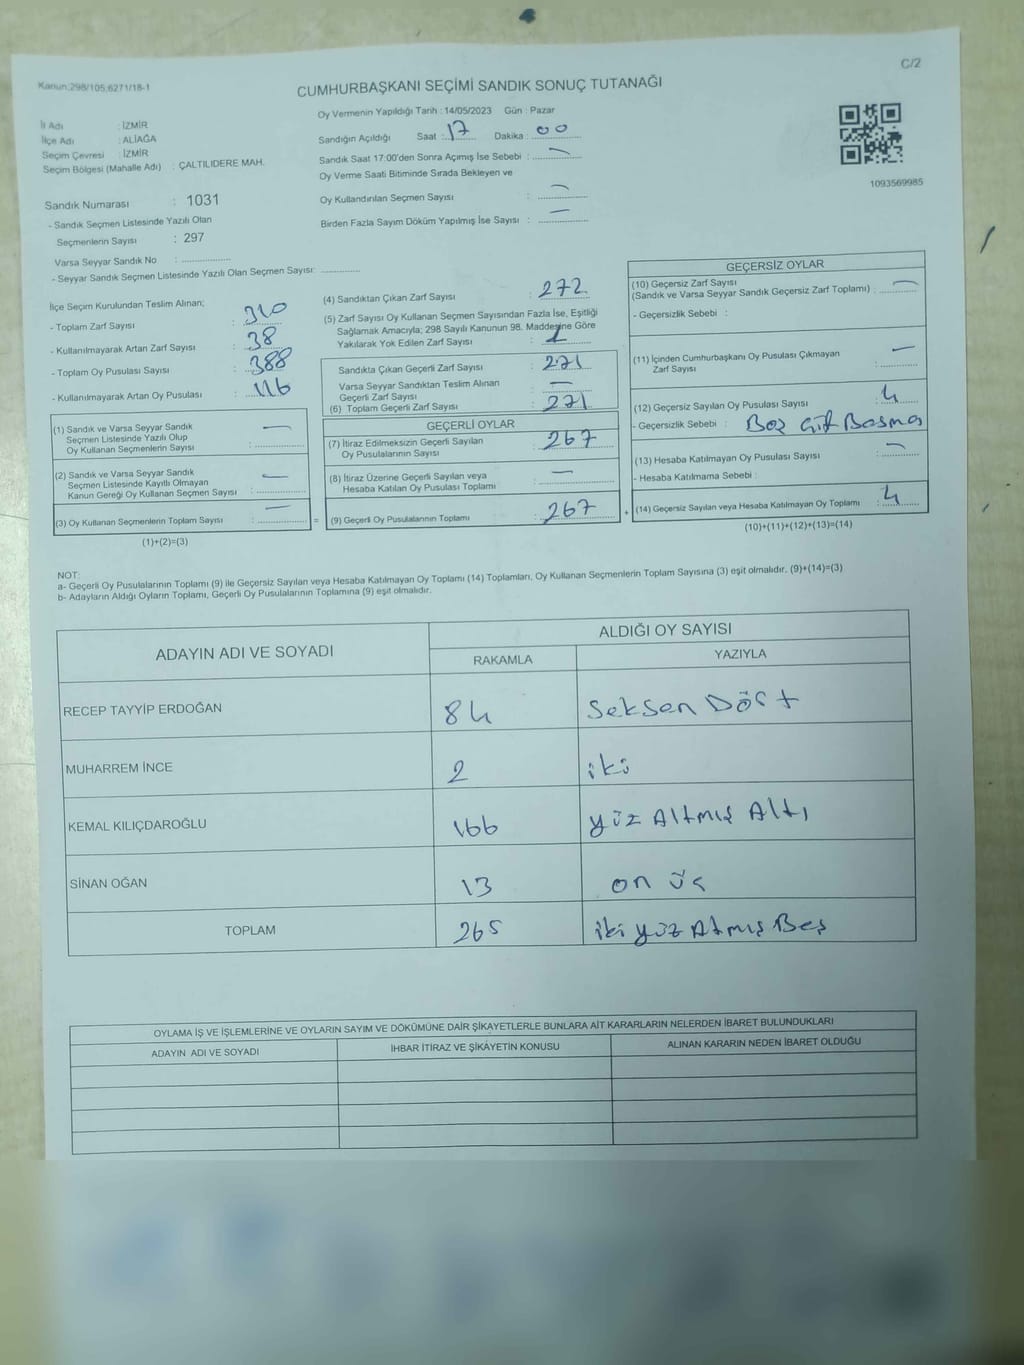 Kanun:298/105,6271/18-1
C/2
CUMHURBAŞKANI SEÇİMİ SANDIK SONUÇ TUTANAĞI
İl Adı : İZMİR
İlçe Adı : ALİAĞA
Seçim Çevresi : İZMİR
Seçim Bölgesi (Mahalle Adı) : ÇALTILIDERE MAH.
Sandık Numarası : 1031
- Sandık Seçmen Listesinde Yazılı Olan
Seçmenlerin Sayısı : 297
Varsa Seyyar Sandık No :
- Seyyar Sandık Seçmen Listesinde Yazılı Olan Seçmen Sayısı:
Oy Vermenin Yapıldığı Tarih : 14/05/2023 Gün : Pazar
Sandığın Açıldığı Saat : 17 Dakika : 00
Sandık Saat 17:00'den Sonra Açımış İse Sebebi : —
Oy Verme Saati Bitiminde Sırada Bekleyen ve
Oy Kullandırılan Seçmen Sayısı : —
Birden Fazla Sayım Döküm Yapılmış İse Sayısı : —
1093569985
İlçe Seçim Kurulundan Teslim Alınan;
- Toplam Zarf Sayısı : 310
- Kullanılmayarak Artan Zarf Sayısı : 38
- Toplam Oy Pusulası Sayısı : 388
- Kullanılmayarak Artan Oy Pusulası : 116
(1) Sandık ve Varsa Seyyar Sandık
Seçmen Listesinde Yazılı Olup
Oy Kullanan Seçmenlerin Sayısı : —
(2) Sandık ve Varsa Seyyar Sandık
Seçmen Listesinde Kayıtlı Olmayan
Kanun Gereği Oy Kullanan Seçmen Sayısı : —
(3) Oy Kullanan Seçmenlerin Toplam Sayısı : — =
(1)+(2)=(3)
(4) Sandıktan Çıkan Zarf Sayısı : 272
(5) Zarf Sayısı Oy Kullanan Seçmen Sayısından Fazla İse, Eşitliği
Sağlamak Amacıyla; 298 Sayılı Kanunun 98. Maddesine Göre
Yakılarak Yok Edilen Zarf Sayısı : 1
Sandıkta Çıkan Geçerli Zarf Sayısı : 271
Varsa Seyyar Sandıktan Teslim Alınan
Geçerli Zarf Sayısı : —
(6) Toplam Geçerli Zarf Sayısı : 271
GEÇERLİ OYLAR
(7) İtiraz Edilmeksizin Geçerli Sayılan
Oy Pusulalarının Sayısı : 267
(8) İtiraz Üzerine Geçerli Sayılan veya
Hesaba Katılan Oy Pusulası Toplamı : —
(9) Geçerli Oy Pusulalarının Toplamı : 267 +
GEÇERSİZ OYLAR
(10) Geçersiz Zarf Sayısı
(Sandık ve Varsa Seyyar Sandık Geçersiz Zarf Toplamı) : —
- Geçersizlik Sebebi :
(11) İçinden Cumhurbaşkanı Oy Pusulası Çıkmayan
Zarf Sayısı : —
(12) Geçersiz Sayılan Oy Pusulası Sayısı : 4
- Geçersizlik Sebebi : Boş Çift Basma
(13) Hesaba Katılmayan Oy Pusulası Sayısı : —
- Hesaba Katılmama Sebebi :
(14) Geçersiz Sayılan veya Hesaba Katılmayan Oy Toplamı : 4
(10)+(11)+(12)+(13)=(14)
NOT:
a- Geçerli Oy Pusulalarının Toplamı (9) ile Geçersiz Sayılan veya Hesaba Katılmayan Oy Toplamı (14) Toplamları, Oy Kullanan Seçmenlerin Toplam Sayısına (3) eşit olmalıdır. (9)+(14)=(3)
b- Adayların Aldığı Oyların Toplamı, Geçerli Oy Pusulalarının Toplamına (9) eşit olmalıdır.
ADAYIN ADI VE SOYADI
ALDIĞI OY SAYISI
RAKAMLA YAZIYLA
RECEP TAYYİP ERDOĞAN 84 Seksen Dört
MUHARREM İNCE 2 iki
KEMAL KILIÇDAROĞLU 166 yüz Altmış Altı
SİNAN OĞAN 13 on üç
TOPLAM 265 iki yüz Atmış Beş
OYLAMA İŞ VE İŞLEMLERİNE VE OYLARIN SAYIM VE DÖKÜMÜNE DAİR ŞİKAYETLERLE BUNLARA AİT KARARLARIN NELERDEN İBARET BULUNDUKLARI
ADAYIN ADI VE SOYADI İHBAR İTİRAZ VE ŞİKÂYETİN KONUSU ALINAN KARARIN NEDEN İBARET OLDUĞU